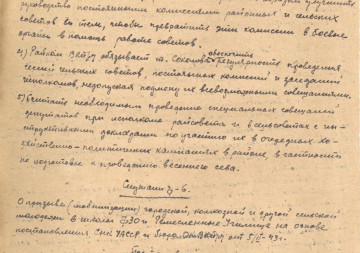 руководство постоянными комиссиями районных и сельских
советов с тем, чтобы превратить эти комиссии в боевые
органы в помощь работе советов.
4) Райком ВКП(б) обязывает т. Соколова обеспечить регулярность проведения
сессий сельских советов, постоянных комиссий и заседаний
исполкомов, недопуская подмену их всевозможными совещаниями.
5) Считать необходимым проведение специальных совещаний
депутатов при исполкоме райсовета и в сельсоветах с ин-
структивными докладами по участию их в очередных хо-
зяйственно-политических кампаниях в районе, в частности
по подготовке к проведению весеннего сева.
Слушали §-6.
О призыве (мобилизации) городской, колхозной и другой сельской
молодежи в школы ФЗО и Ремесленные Училища на основе
постановления СНК и Бюро ВКП(б) от 43 г.